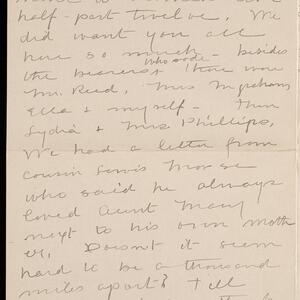 half-part twelve. We
did want you all
here so much - besides
who rode
the bearers, there were
Mr. Reed, Mrs
Ella & myself - then
Lydia & Mrs Phillips.
We had a letter from
cousin Lewis Morse
who said he always
loved Aunt Mary
next to his own moth
er. Doesn't it seem
hard to be a thousand
miles apart? Tell